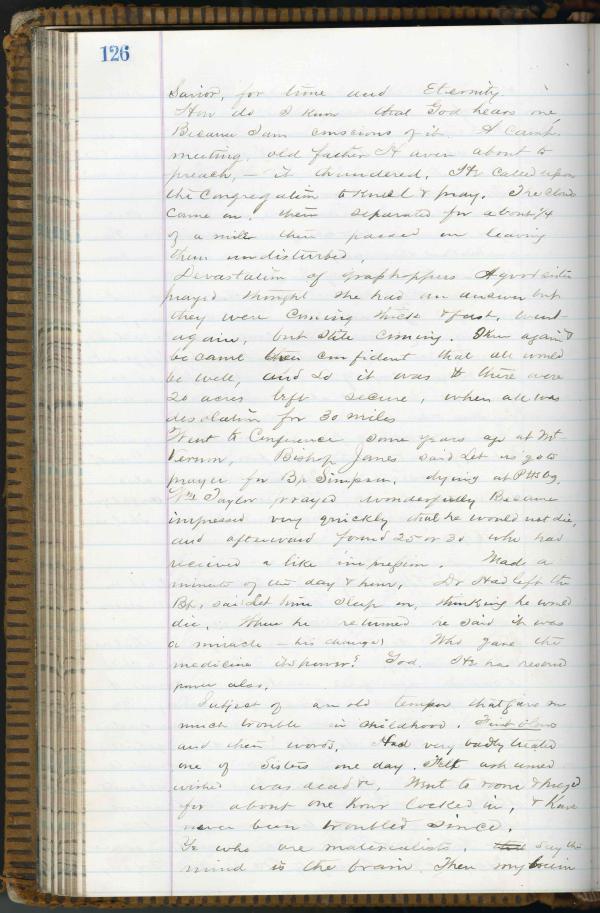 126
Savior, for time and Eternity
How do I know that God hears me,
Because I am conscious of it. A Camp.
meeting, old father H aven about to
preach, — it thundered. He called upon
the Congregation to Kneel & pray. The Clouds
came on, then separated for about 1/4
of a mile then passed on leaving
them undisturbed.
Devastation of grasshoppers A good sister
prayed thought she had an answer but
they were coming thick & fast, went
again, but still coming. Then again &
became confident that all would
be well, and so it was there were
20 acres left secure, when all was
desolation for 30 miles
Went to Conference some years ago at Mt
Vernon, Bishop Janes said Let us go to
prayer for Bp Simpson, dying at Pittsbg.
Wm Taylor prayed wonderfully Became
impressed very quickly that he would not die,
and afterward found 25 or 30 who had
received a like impression. Made a
minute of the day & hour, Dr Had left the
Bp, said Let him sleep on, thinking he would
die. When he returned he said it was
a miracle — his change! Who gave the
medicine its power? God. He has reserve
power also.
Subject of an old temper that gave me
much trouble in childhood. First blows
and then words, Had very badly treated
one of Sisters one day. Felt ashamed
wished was dead &c, Went to room & prayed
for about one hour locked in, & have
never been troubled since.
Ye who are materialists, say the
mind is the brain. Then my brain